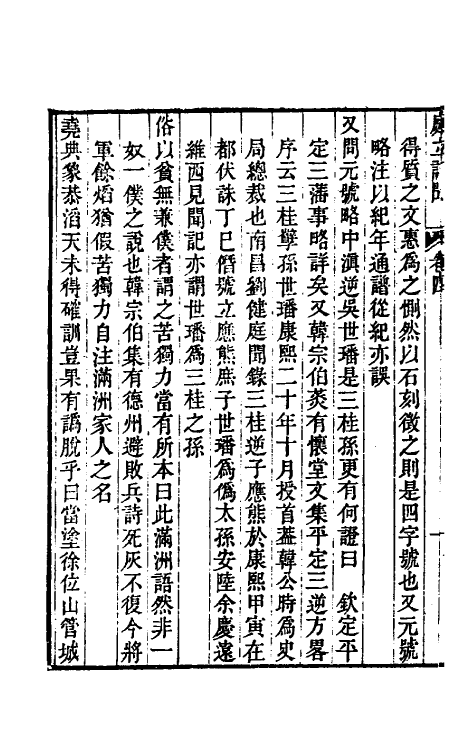 得質之文惠為之惻然以石刻徵之則是四字號也又元號
略注以紀年通譜從紀亦誤
又問元號略中滇逆吳世璠是三桂孫更有何證曰　欽定平
定三藩事略詳矣又韓宗伯菼有懷堂文集平定三逆方畧
序云三桂孽孫世璠康熙二十年十月授首蓋韓公時為史
局總裁也南昌劉健庭聞錄三桂逆子應熊於康熙甲寅在
都伏誅丁巳僭號立應熊庶子世璠為偽太孫安陸余慶遠
維西見聞記亦謂世璠為三桂之孫
俗以貧無兼僕者謂之苦獨力當有所本曰此滿洲語然非一
奴一僕之說也韓宗伯集有德州避敗兵詩死灰不復今將
軍餘熖猶假苦獨力自注滿洲家人之名
堯典象恭滔天未得確訓豈果有譌脫乎曰當塗徐位山管城